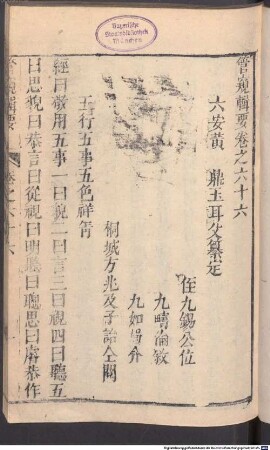 管窺輯要卷之六十六
六安黃 鼎玉耳父纂定
侄九錫公位
九疇倫敘
九如
桐城方兆及子詒仝閱
五行五事五色祥眚
經曰敬用五事一曰貌二曰言三曰視四曰聽五
曰思貌曰恭言曰從視曰明聽曰聰思曰睿恭作
Bayerische
Staatsbibliothek
München